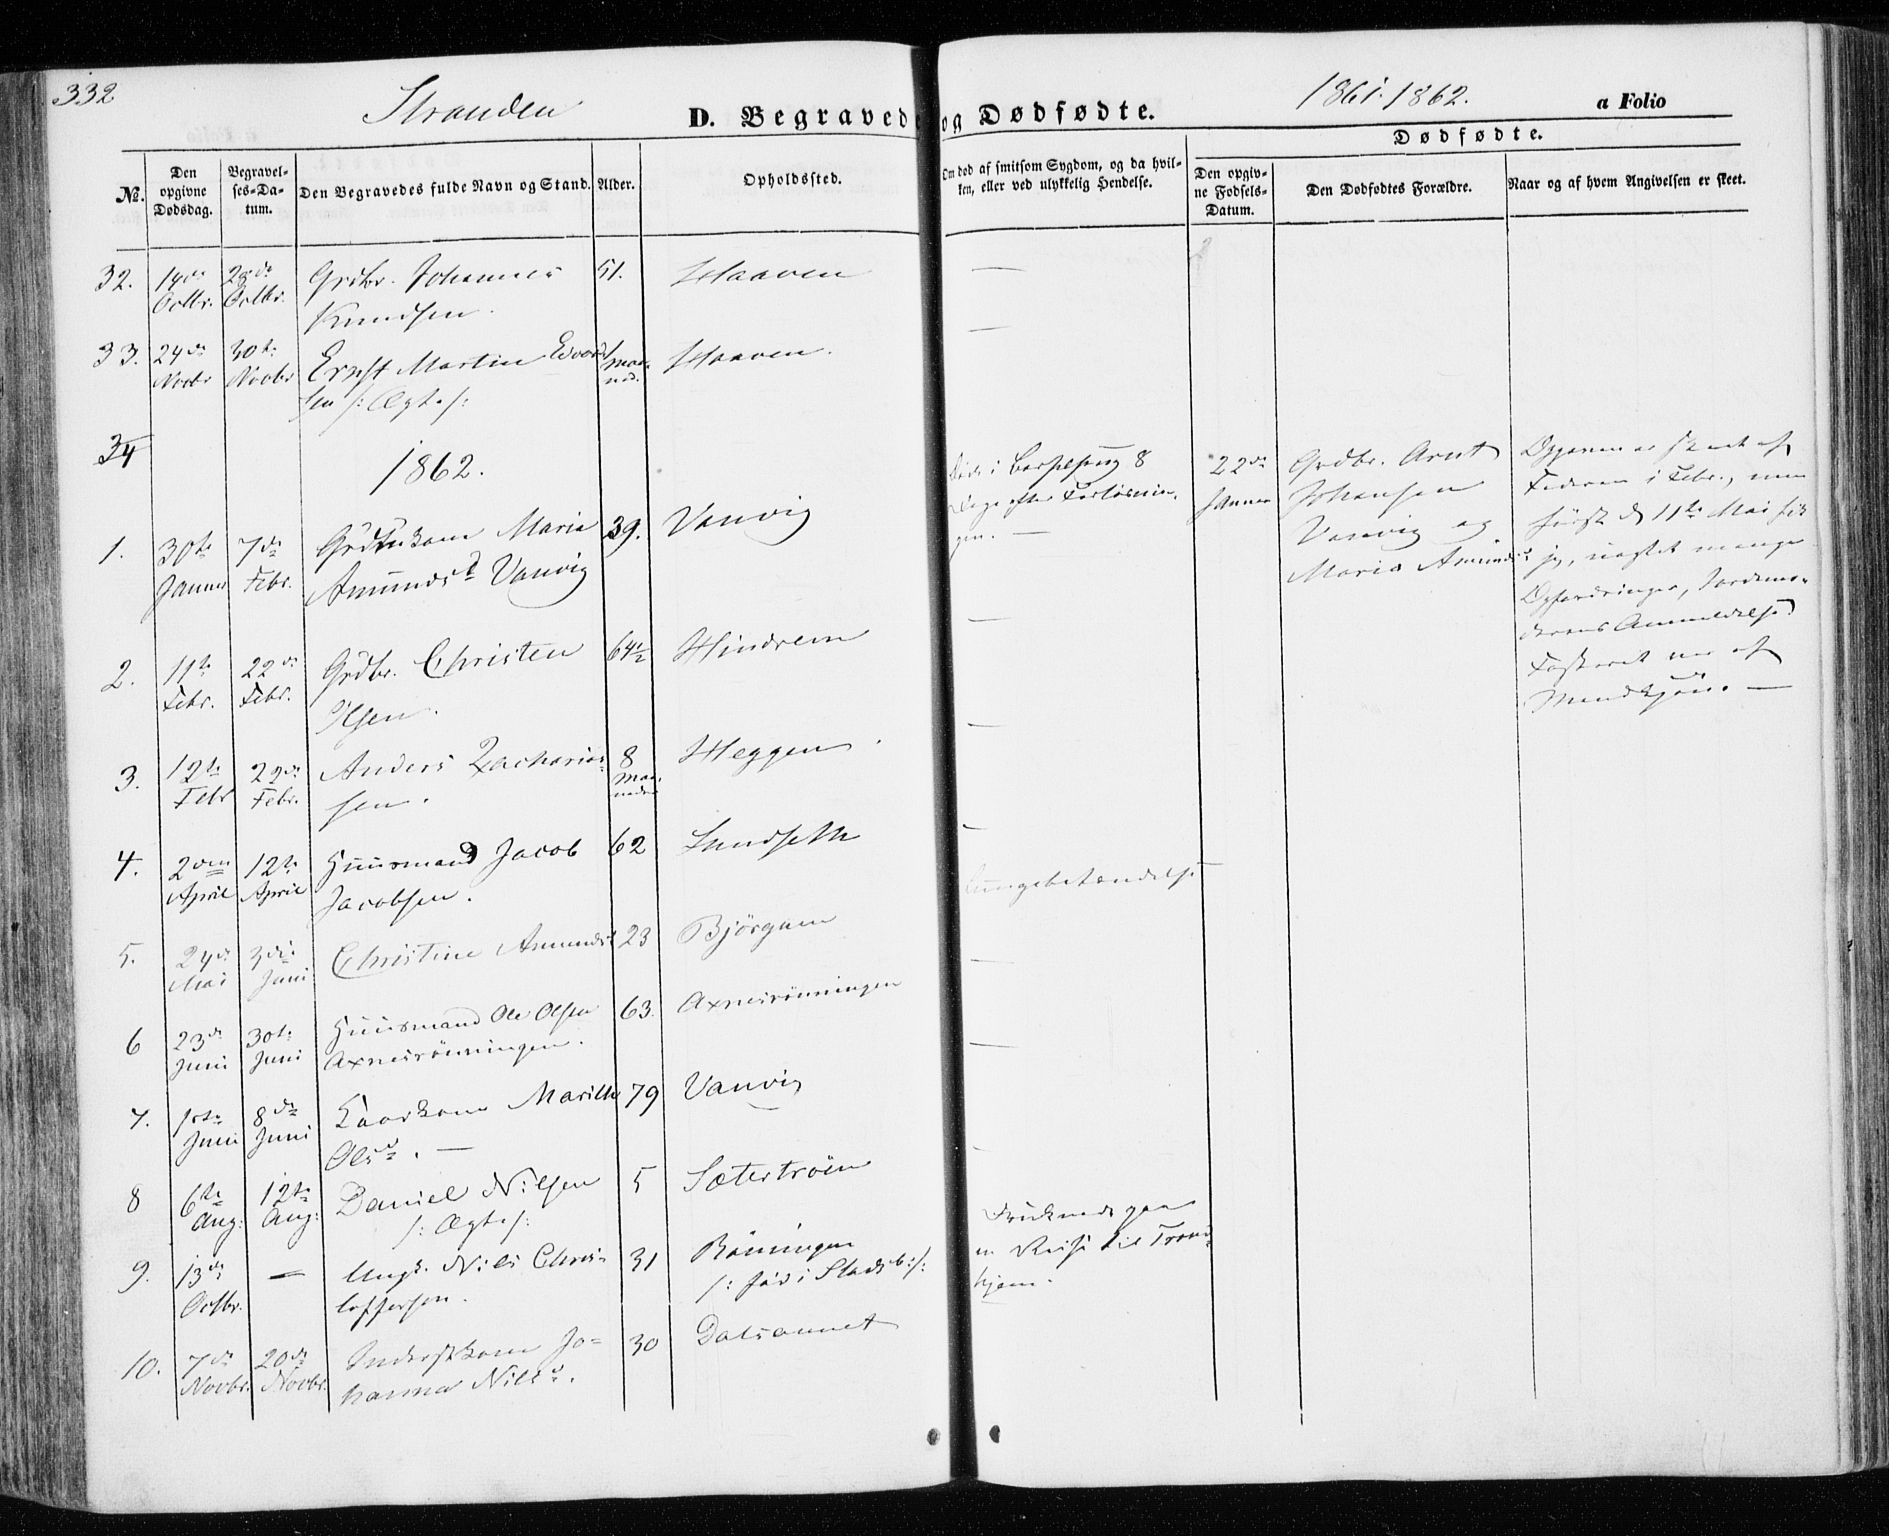 332
Stranden
D. Begravede og Dødfødte.
1861. 1862.
a Folio
Dødfødte.
No.
Den opgivne Dødsdag.
Begravelses-Datum.
Den Begravedes fulde Navn og Stand.
Alder.
Opholdssted.
Om død af smitsom Sygdom, og da hvilken, eller ved ulykkelig Hendelse.
Den opgivne Fødsels-Datum.
Den Dødfødtes Forældre.
Naar og af hvem Angivelsen er skeet.
32. 14de Octbr. 28de Octbr. Grdbr. Johannes Knudsen. 51. Haaven —
33. 24de Novbr 30te Novbr Ernst Martin Edvardsen /: Ægte :/ 1 Maaned. Haaven. —
34
1862.
1. 30te Januar 7de Febr. Grdbrukone Maria Amundsd. Vanvig 39. Vanvig Døde i Barselseng 8 Dage efter Forløsningen. —
22de Januar Grdbr. Arnt Johansen Vanvig og Maria Amundsd.
Opgaven er skeet af Faderen i Febr., men først d 11te Mai fik jeg, uagtet mange Opfordringer, Jordemoderens Anmeldelse Fosteret var af Mandkjøn. —
2. 11te Febr. 22de Febr. Grdbr. Christen Olsen. 64½ Hindrem —
3. 12te Febr 22de Febr. Anders Zachariassen. 8 Maaneder Heggen. —
4. 2den April 12te April Huusmand Jacob Jacobsen. 62 Sundseth —
5. 24de Mai 3die Juni Christine Amundsd 23 Bjørgan Lungebetændelse
6 23de Juni 30te Juni Huusmand Ole Olsen Axnesrønningen. 63. Axnesrønningen —
7. 1ste Juni 8de Juni Kaarkone Marith Olsd. — 79 Vanvig —
8 6te Aug: 12te Aug: Daniel Nilsen /: Ægte :/ 5 Sætertrøen —
9. 13de Octbr. — Ungk. Nils Christoffersen. 31 Rønningen /: Fød i Stadsb: :/ Druknede paa en Reise til Trondhjem.
10. 7de Novbr. 20de Novbr. Inderstkone Johanna Nilsd. 30 Dalsaunet